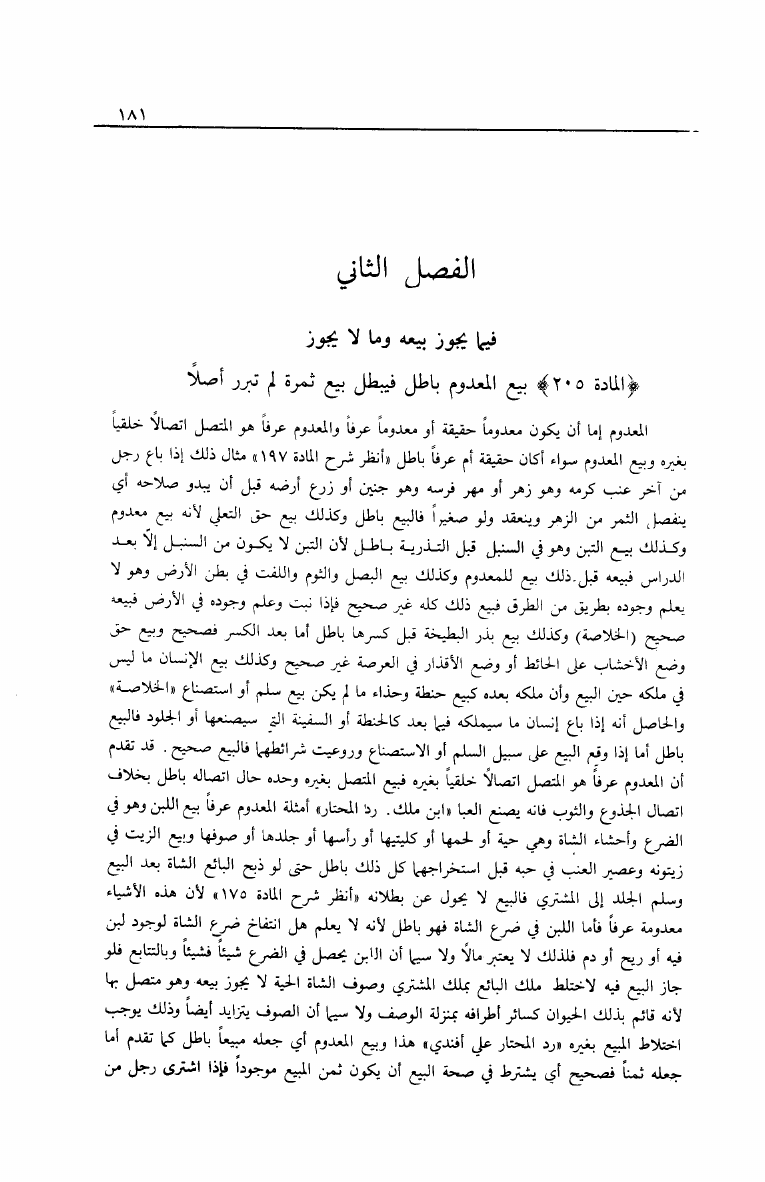 ١٨١
الفصل الثاني
فيما يجوز بيعه وما لا يجوز
﴿المادة ٢٠٥﴾ بيع المعدوم باطل فيبطل بيع ثمرة لم تبرز أصلاً
المعدوم إما أن يكون معدوماً حقيقة أو معدوماً عرفاً والمعدوم عرفاً هو المتصل اتصالاً خلقياً
بغيره وبيع المعدوم سواء أكان حقيقة أم عرفاً باطل «أنظر شرح المادة ١٩٧» مثال ذلك إذا باع رجل
من آخر عنب كرمه وهو زهر أو مهر فرسه وهو جنين أو زرع أرضه قبل أن يبدو صلاحه أي
ينفصل الثمر من الزهر وينعقد ولو صغيراً فالبيع باطل وكذلك بيع حق التعلي لأنه بيع معدوم
وكذلك بيع التبن وهو في السنبل قبل التذرية باطل لأن التبن لا يكون من السنبل إلاّ بعد
الدراس فبيعه قبل ذلك بيع للمعدوم وكذلك بيع البصل والثوم واللفت في بطن الأرض وهو لا
يعلم وجوده بطريق من الطرق فبيع ذلك كله غير صحيح فإذا نبت وعلم وجوده في الأرض فبيعه
صحيح (الخلاصة) وكذلك بيع بذر البطيخة قبل كسرها باطل أما بعد الكسر فصحيح وبيع حق
وضع الأخشاب على الحائط أو وضع الأقذار في العرصة غير صحيح وكذلك بيع الإنسان ما ليس
في ملكه حين البيع وأن ملكه بعده كبيع حنطة وحذاء ما لم يكن بيع سلم أو استصناع «الخلاصة»
والحاصل أنه إذا باع إنسان ما سيملكه فيما بعد كالحنطة أو السفينة التي سيصنعها أو الجلود فالبيع
باطل أما إذا وقع البيع على سبيل السلم أو الاستصناع وروعيت شرائطهما فالبيع صحيح. قد تقدم
أن المعدوم عرفاً هو المتصل اتصالاً خلقياً بغيره فبيع المتصل بغيره وحده حال اتصاله باطل بخلاف
اتصال الجذوع والثوب فانه يصنع العبا «ابن ملك. رد المحتار» أمثلة المعدوم عرفاً بيع اللبن وهو في
الضرع وأحشاء الشاة وهي حية أو لحمها أو كليتيها أو رأسها أو جلدها أو صوفها وبيع الزيت في
زيتونه وعصير العنب في حبه قبل استخراجهما كل ذلك باطل حتى لو ذبح البائع الشاة بعد البيع
وسلم الجلد إلى المشتري فالبيع لا يحول عن بطلانه «أنظر شرح المادة ١٧٥» لأن هذه الأشياء
معدومة عرفاً فأما اللبن في ضرع الشاة فهو باطل لأنه لا يعلم هل انتفاخ ضرع الشاة لوجود لبن
فيه أو ريح أو دم فلذلك لا يعتبر مالاً ولا سيما أن اللبن يحصل في الضرع شيئاً فشيئاً وبالتتابع فلو
جاز البيع فيه لاختلط ملك البائع بملك المشتري وصوف الشاة الحية لا يجوز بيعه وهو متصل بها
لأنه قائم بذلك الحيوان كسائر أطرافه بمنزلة الوصف ولا سيما أن الصوف يتزايد أيضاً وذلك يوجب
اختلاط المبيع بغيره «رد المحتار علي أفندي» هذا وبيع المعدوم أي جعله مبيعاً باطل كما تقدم أما
جعله ثمناً فصحيح أي يشترط في صحة البيع أن يكون ثمن المبيع موجوداً فإذا اشترى رجل من